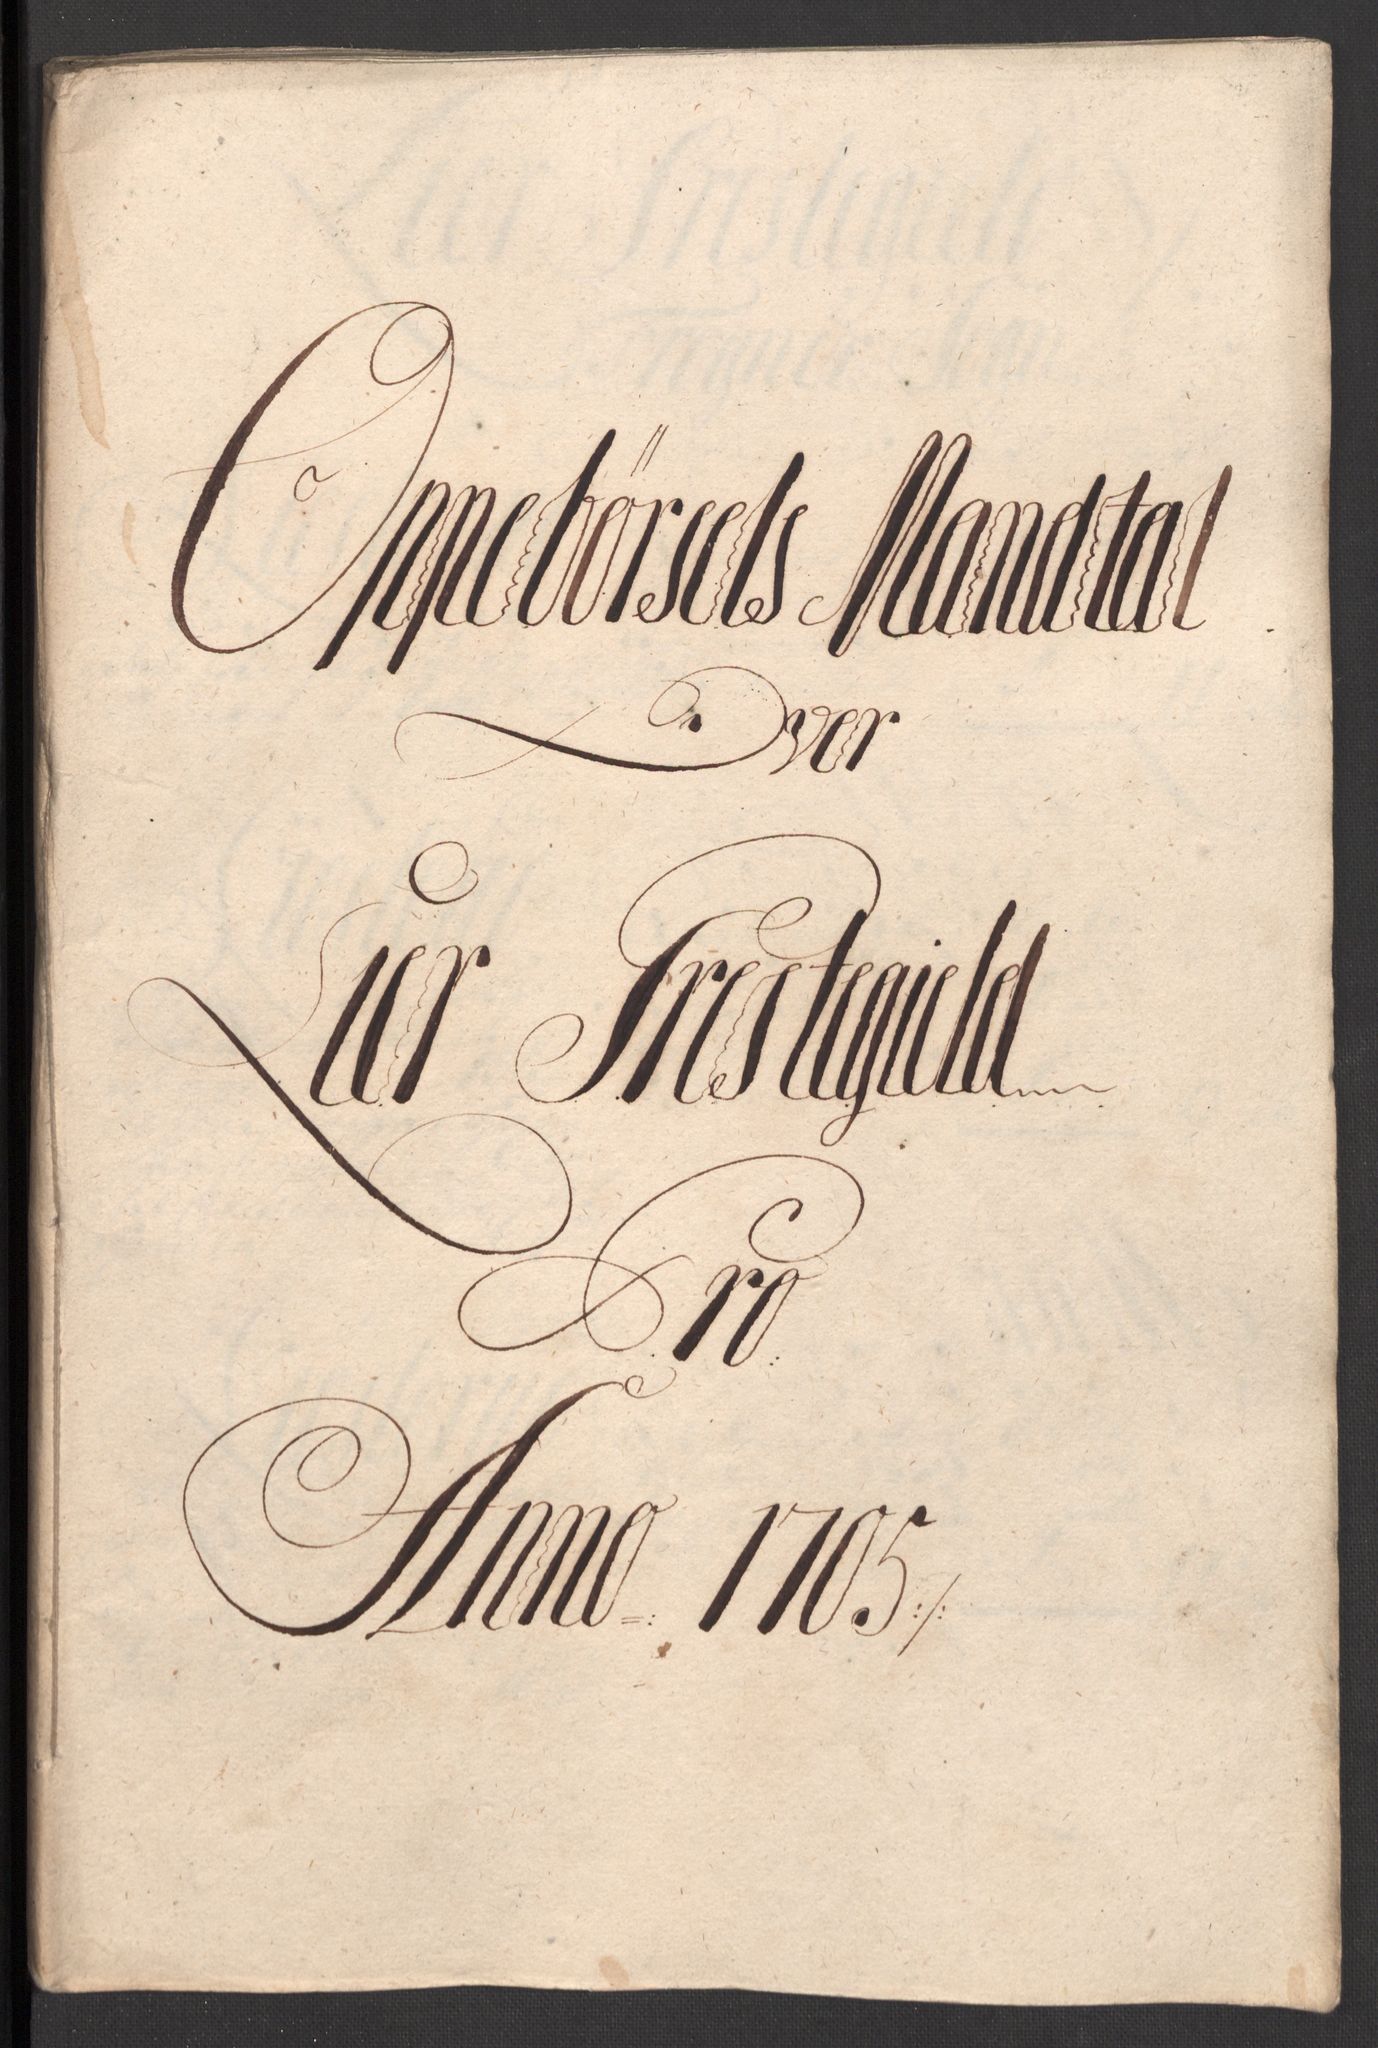 Oppebörsels Mandtal
Over
Lier Prestegield
Pro.
Anno 1705